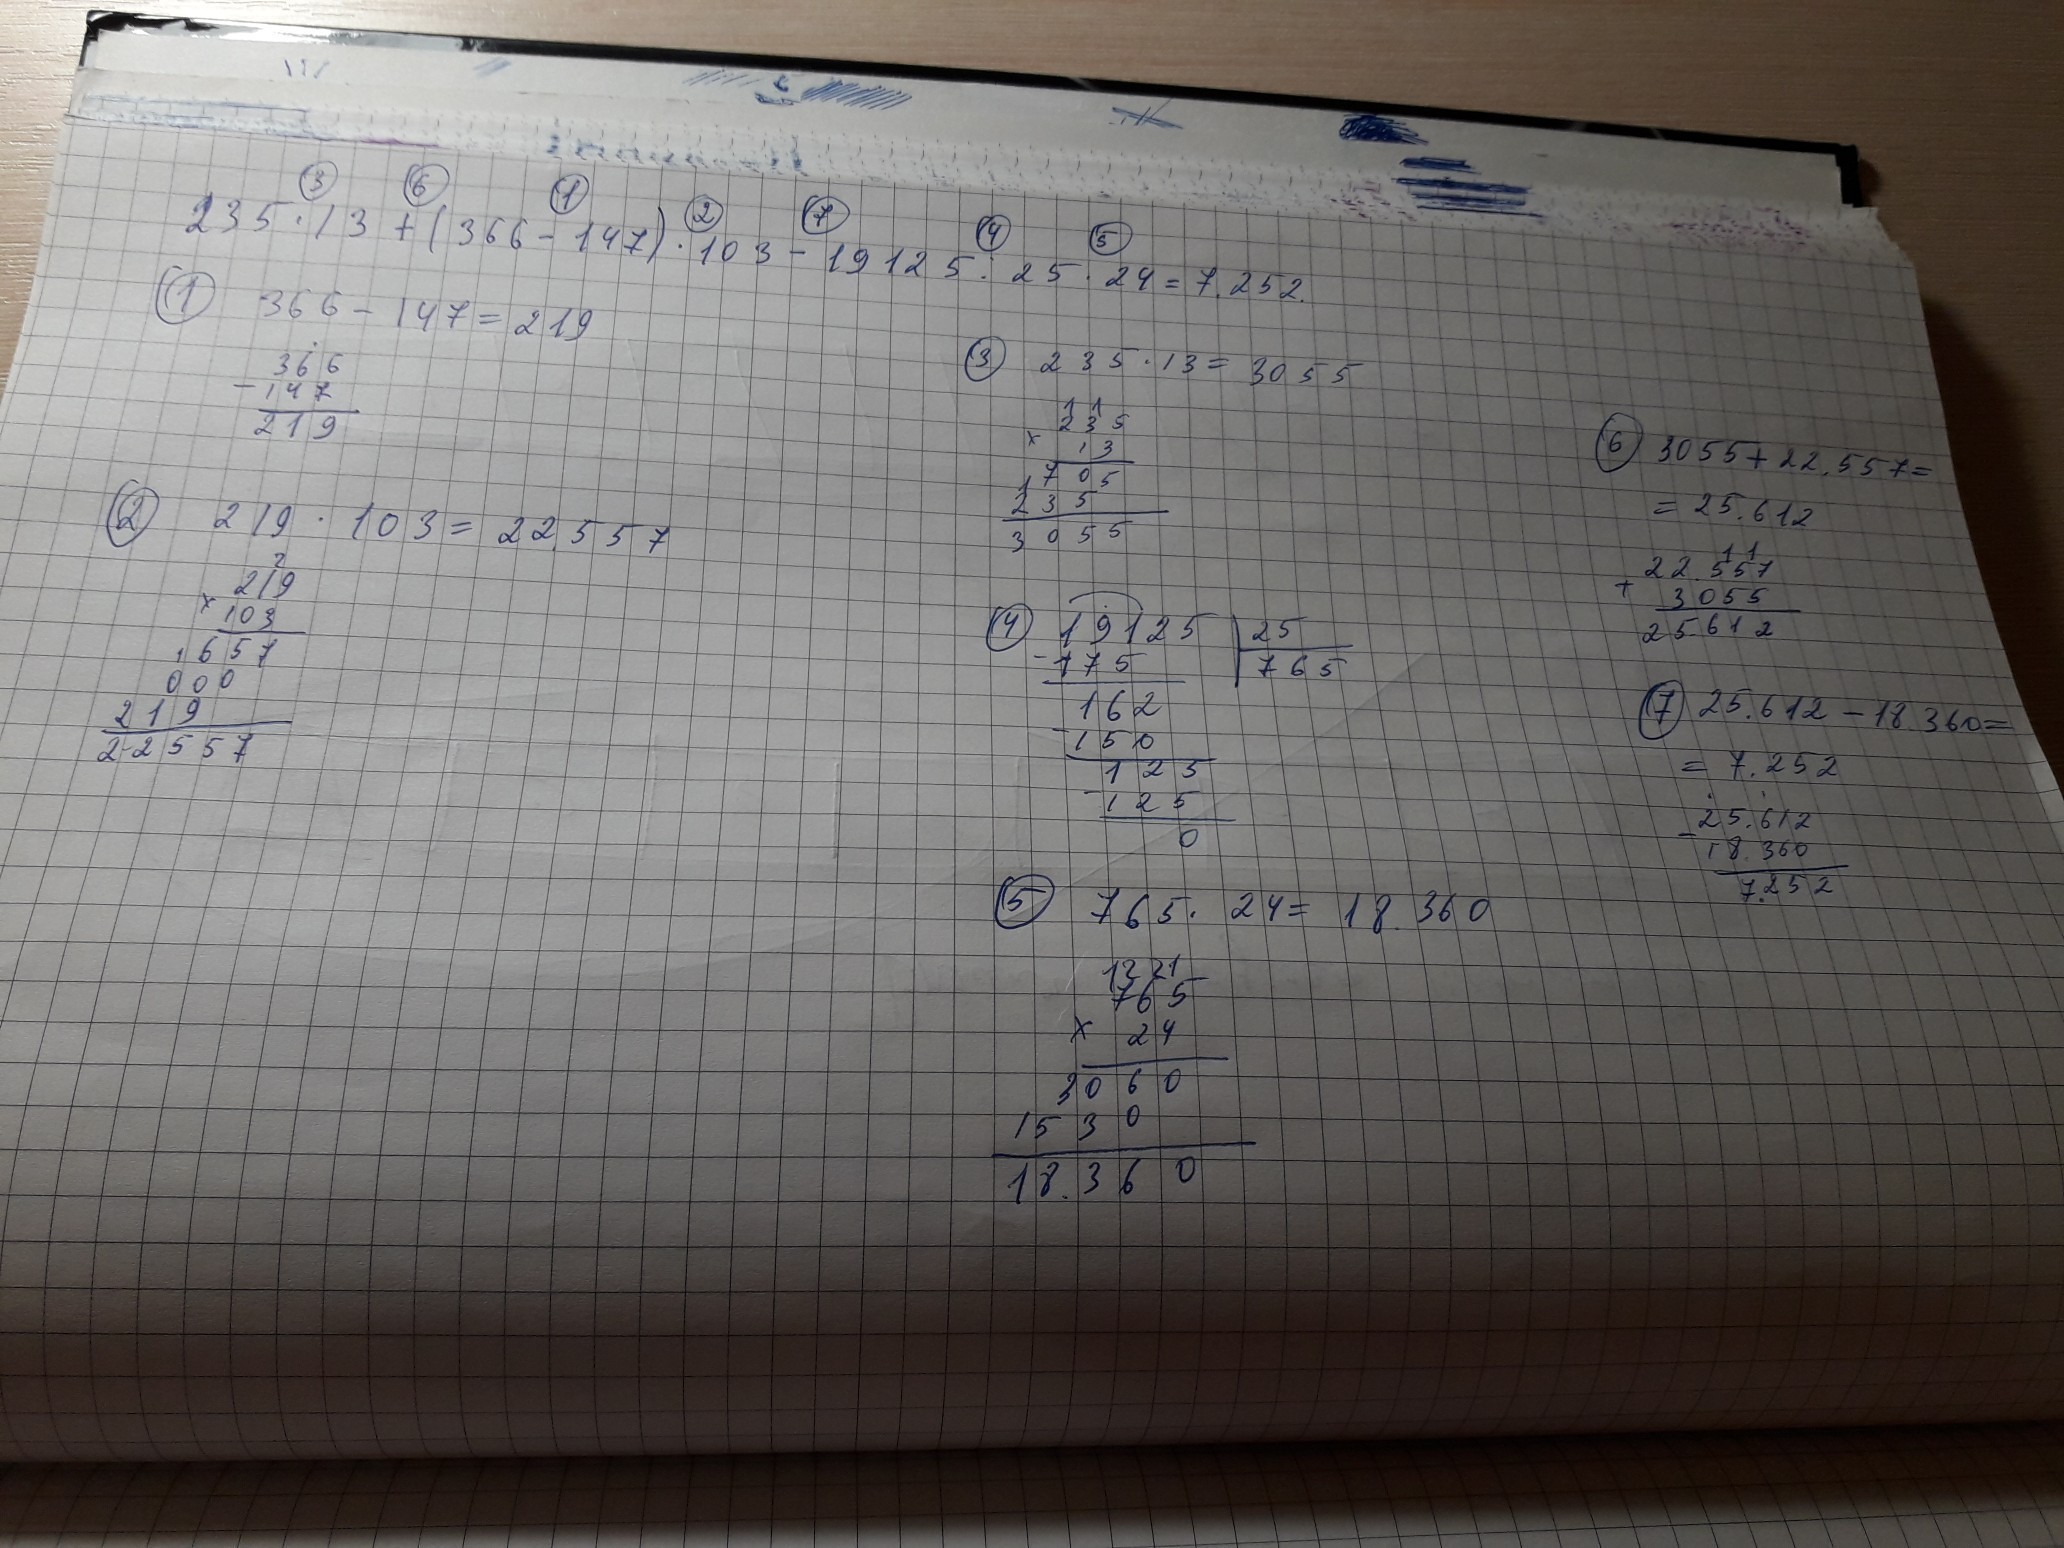 ③ ⑥ ① ② ⑦ ④ ⑤
235·13+(366-147)·103-19125:25·24=7.252.
① 366-147=219
366
-147
219
② 219·103=22.557
2
219
×103
1657
000
219
22557
③ 235·13=3055
1 1
235
× 13
1705
235
3055
④ 19125 25
-175 765
162
-150
125
-125
0
⑤ 765·24=18.360
12 21
765
× 24
3060
1530
18.360
⑥ 3055+22.557=
=25.612
1 1
22.557
+ 3055
25.612
⑦ 25.612-18.360=
=7.252
25.612
-18.360
7.252